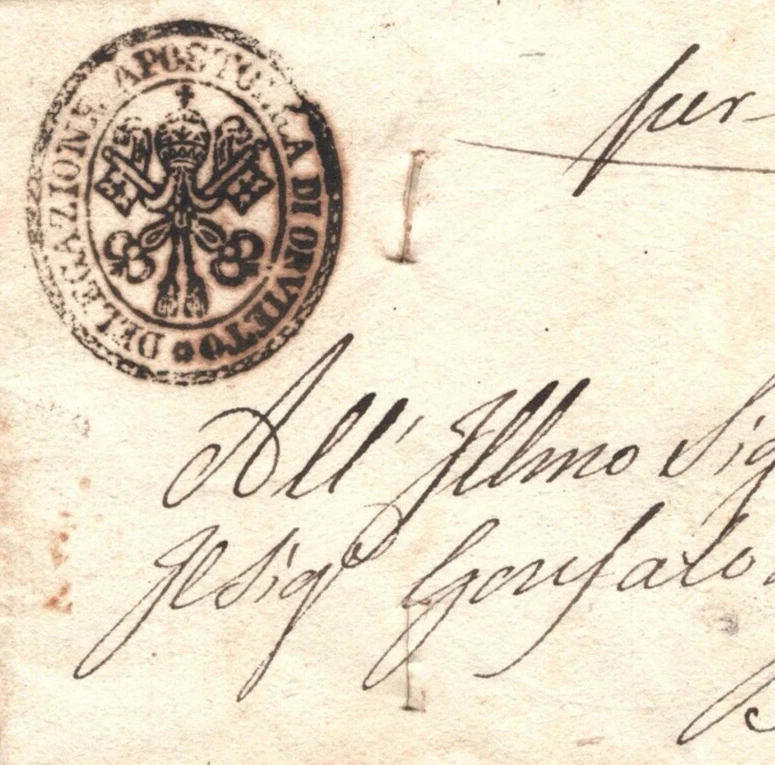 DELEGAZIONE APOSTOLICA DI ORVIETO
per
All' Illmo Sig
Il Sigr Gonfalo